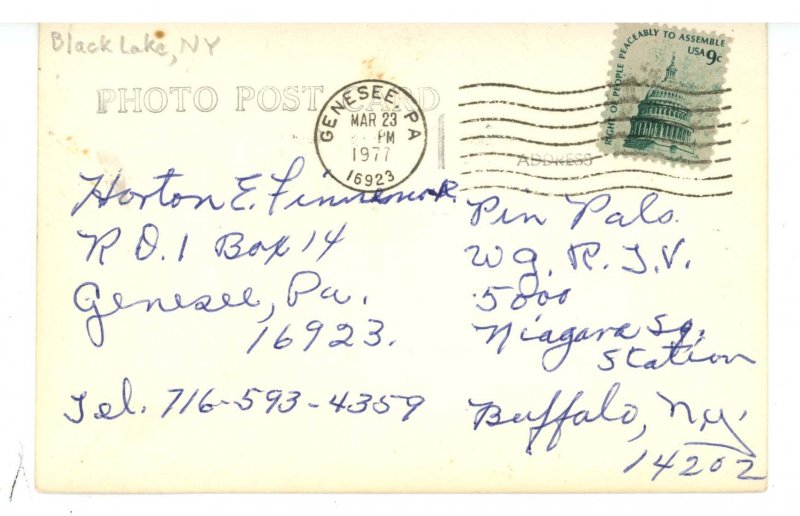 Black Lake, NY
PHOTO POST CARD
GENESEE, PA
MAR 23
PM
1977
16923
RIGHT OF PEOPLE PEACEABLY TO ASSEMBLE
USA 9c
ADDRESS
Horton E.
R D. 1 Box 14
Genesee, Pa.
16923.
Tel. 716-593-4359
Pin Pals
W g. R. T.V.
5000
Niagara Sq.
Station
Buffalo, N.Y.
14202